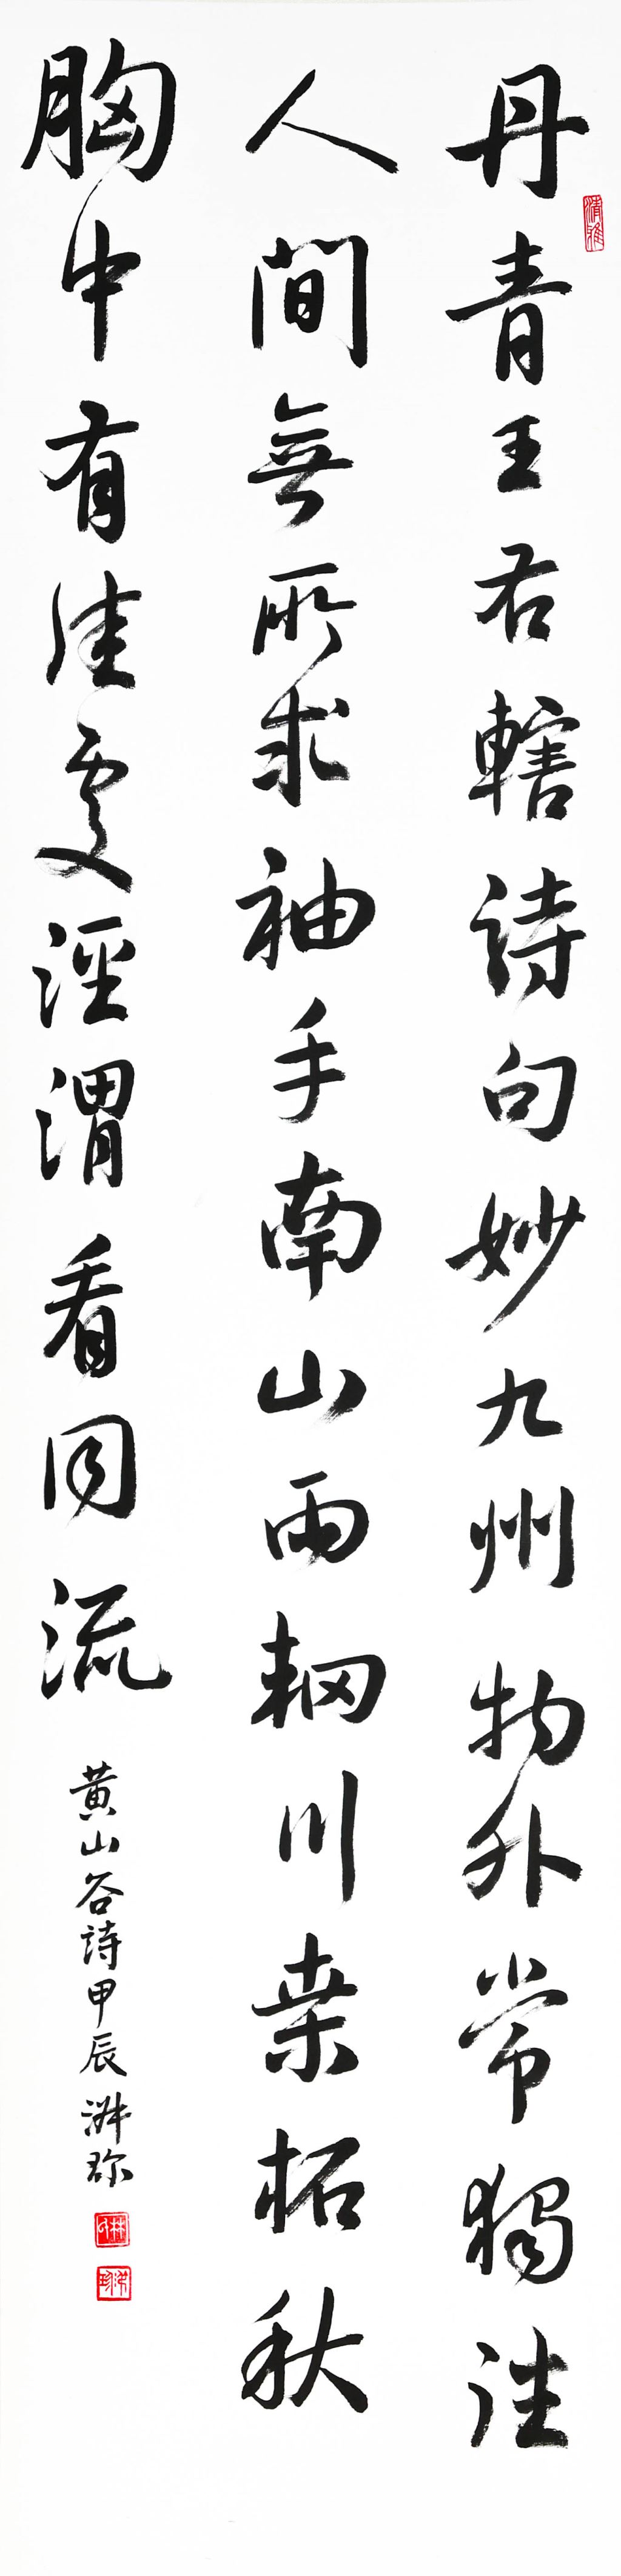 丹青王右轄詩句妙九州物外常獨往
人間無所求袖手南山雨輞川桑柘秋
胸中有佳處涇渭看同流
黄山谷詩甲辰
清雅